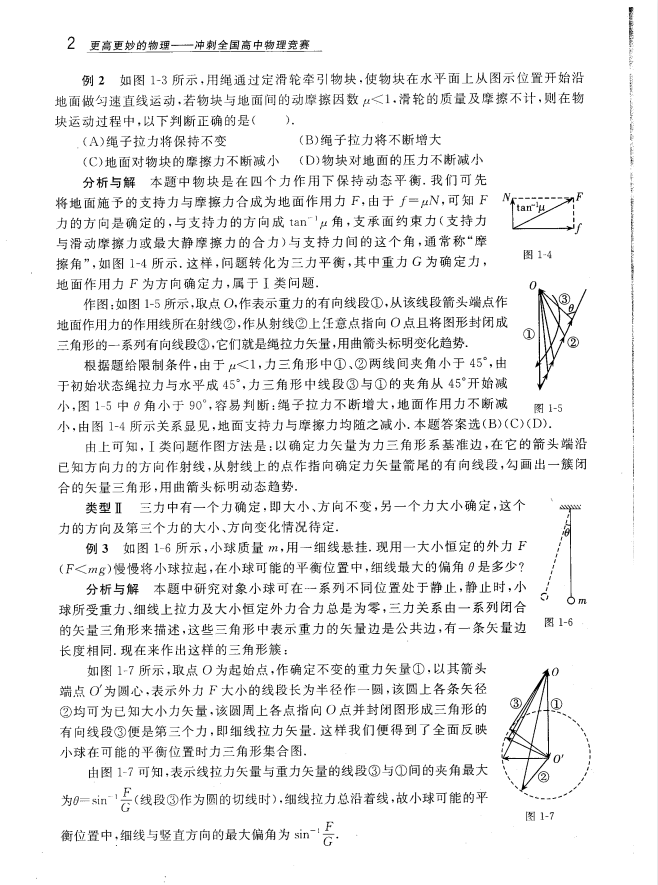 2 更高更妙的物理——冲刺全国高中物理竞赛
例2 如图1-3所示,用绳通过定滑轮牵引物块,使物块在水平面上从图示位置开始沿
地面做匀速直线运动,若物块与地面间的动摩擦因数μ<1,滑轮的质量及摩擦不计,则在物
块运动过程中,以下判断正确的是( ).
(A)绳子拉力将保持不变 (B)绳子拉力将不断增大
(C)地面对物块的摩擦力不断减小 (D)物块对地面的压力不断减小
分析与解 本题中物块是在四个力作用下保持动态平衡.我们可先
将地面施予的支持力与摩擦力合成为地面作用力F,由于f=μN,可知F
力的方向是确定的,与支持力的方向成tan⁻¹μ角,支承面约束力(支持力
与滑动摩擦力或最大静摩擦力的合力)与支持力间的这个角,通常称“摩
擦角”,如图1-4所示.这样,问题转化为三力平衡,其中重力G为确定力,
地面作用力F为方向确定力,属于Ⅰ类问题.
N
F
tan⁻¹μ
f
图1-4
作图:如图1-5所示,取点O,作表示重力的有向线段①,从该线段箭头端点作
地面作用力的作用线所在射线②,作从射线②上任意点指向O点且将图形封闭成
三角形的一系列有向线段③,它们就是绳拉力矢量,用曲箭头标明变化趋势.
根据题给限制条件,由于μ<1,力三角形中①、②两线间夹角小于45°,由
于初始状态绳拉力与水平成45°,力三角形中线段③与①的夹角从45°开始减
小,图1-5中θ角小于90°,容易判断:绳子拉力不断增大,地面作用力不断减
小,由图1-4所示关系显见,地面支持力与摩擦力均随之减小.本题答案选(B)(C)(D).
O
③
θ
①
②
图1-5
由上可知,Ⅰ类问题作图方法是:以确定力矢量为力三角形系基准边,在它的箭头端沿
已知方向力的方向作射线,从射线上的点作指向确定力矢量箭尾的有向线段,勾画出一簇闭
合的矢量三角形,用曲箭头标明动态趋势.
类型Ⅱ 三力中有一个力确定,即大小、方向不变,另一个力大小确定,这个
力的方向及第三个力的大小、方向变化情况待定.
例3 如图1-6所示,小球质量m,用一细线悬挂.现用一大小恒定的外力F
(F<mg)慢慢将小球拉起,在小球可能的平衡位置中,细线最大的偏角θ是多少?
分析与解 本题中研究对象小球可在一系列不同位置处于静止,静止时,小
球所受重力、细线上拉力及大小恒定外力合力总是为零,三力关系由一系列闭合
的矢量三角形来描述,这些三角形中表示重力的矢量边是公共边,有一条矢量边
长度相同.现在来作出这样的三角形簇:
θ
m
图1-6
如图1-7所示,取点O为起始点,作确定不变的重力矢量①,以其箭头
端点O′为圆心,表示外力F大小的线段长为半径作一圆,该圆上各条矢径
②均可为已知大小力矢量,该圆周上各点指向O点并封闭图形成三角形的
有向线段③便是第三个力,即细线拉力矢量.这样我们便得到了全面反映
小球在可能的平衡位置时力三角形集合图.
由图1-7可知,表示线拉力矢量与重力矢量的线段③与①间的夹角最大
为θ=sin⁻¹F/G(线段③作为圆的切线时),细线拉力总沿着线,故小球可能的平
衡位置中,细线与竖直方向的最大偏角为sin⁻¹F/G.
O
③
①
O′
②
图1-7